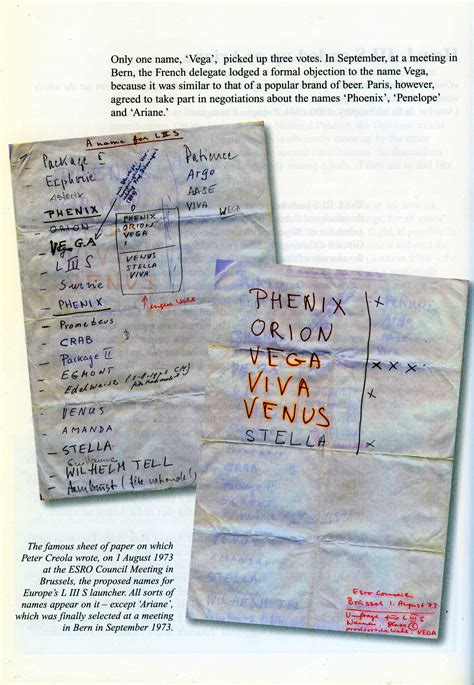 Only one name, ‘Vega’, picked up three votes. In September, at a meeting in
Bern, the French delegate lodged a formal objection to the name Vega,
because it was similar to that of a popular brand of beer. Paris, however,
agreed to take part in negotiations about the names ‘Phoenix’, ‘Penelope’
and ‘Ariane.’
A name for LIIIS
Package I
Ecphorie
Asterix
PHENIX
ORION
VEGA
L III S
Survie
PHENIX
Prometeus
CRAB
Package II
EGMONT
Edelweiss
VENUS
AMANDA
STELLA
Guillaume
WILHELM TELL
Armbrust
Patience
Argo
AASE
VIVA
WEGA
PHENIX
ORION
VEGA
VENUS
STELLA
VIVA
PHENIX x
ORION
VEGA x x x
VIVA x
VENUS
STELLA x
ESRO Council
Brüssel 1. August 73
Umfrage für LIIIS
Namen
VEGA
The famous sheet of paper on which
Peter Creola wrote, on 1 August 1973
at the ESRO Council Meeting in
Brussels, the proposed names for
Europe's L III S launcher. All sorts of
names appear on it – except ‘Ariane’,
which was finally selected at a meeting
in Bern in September 1973.